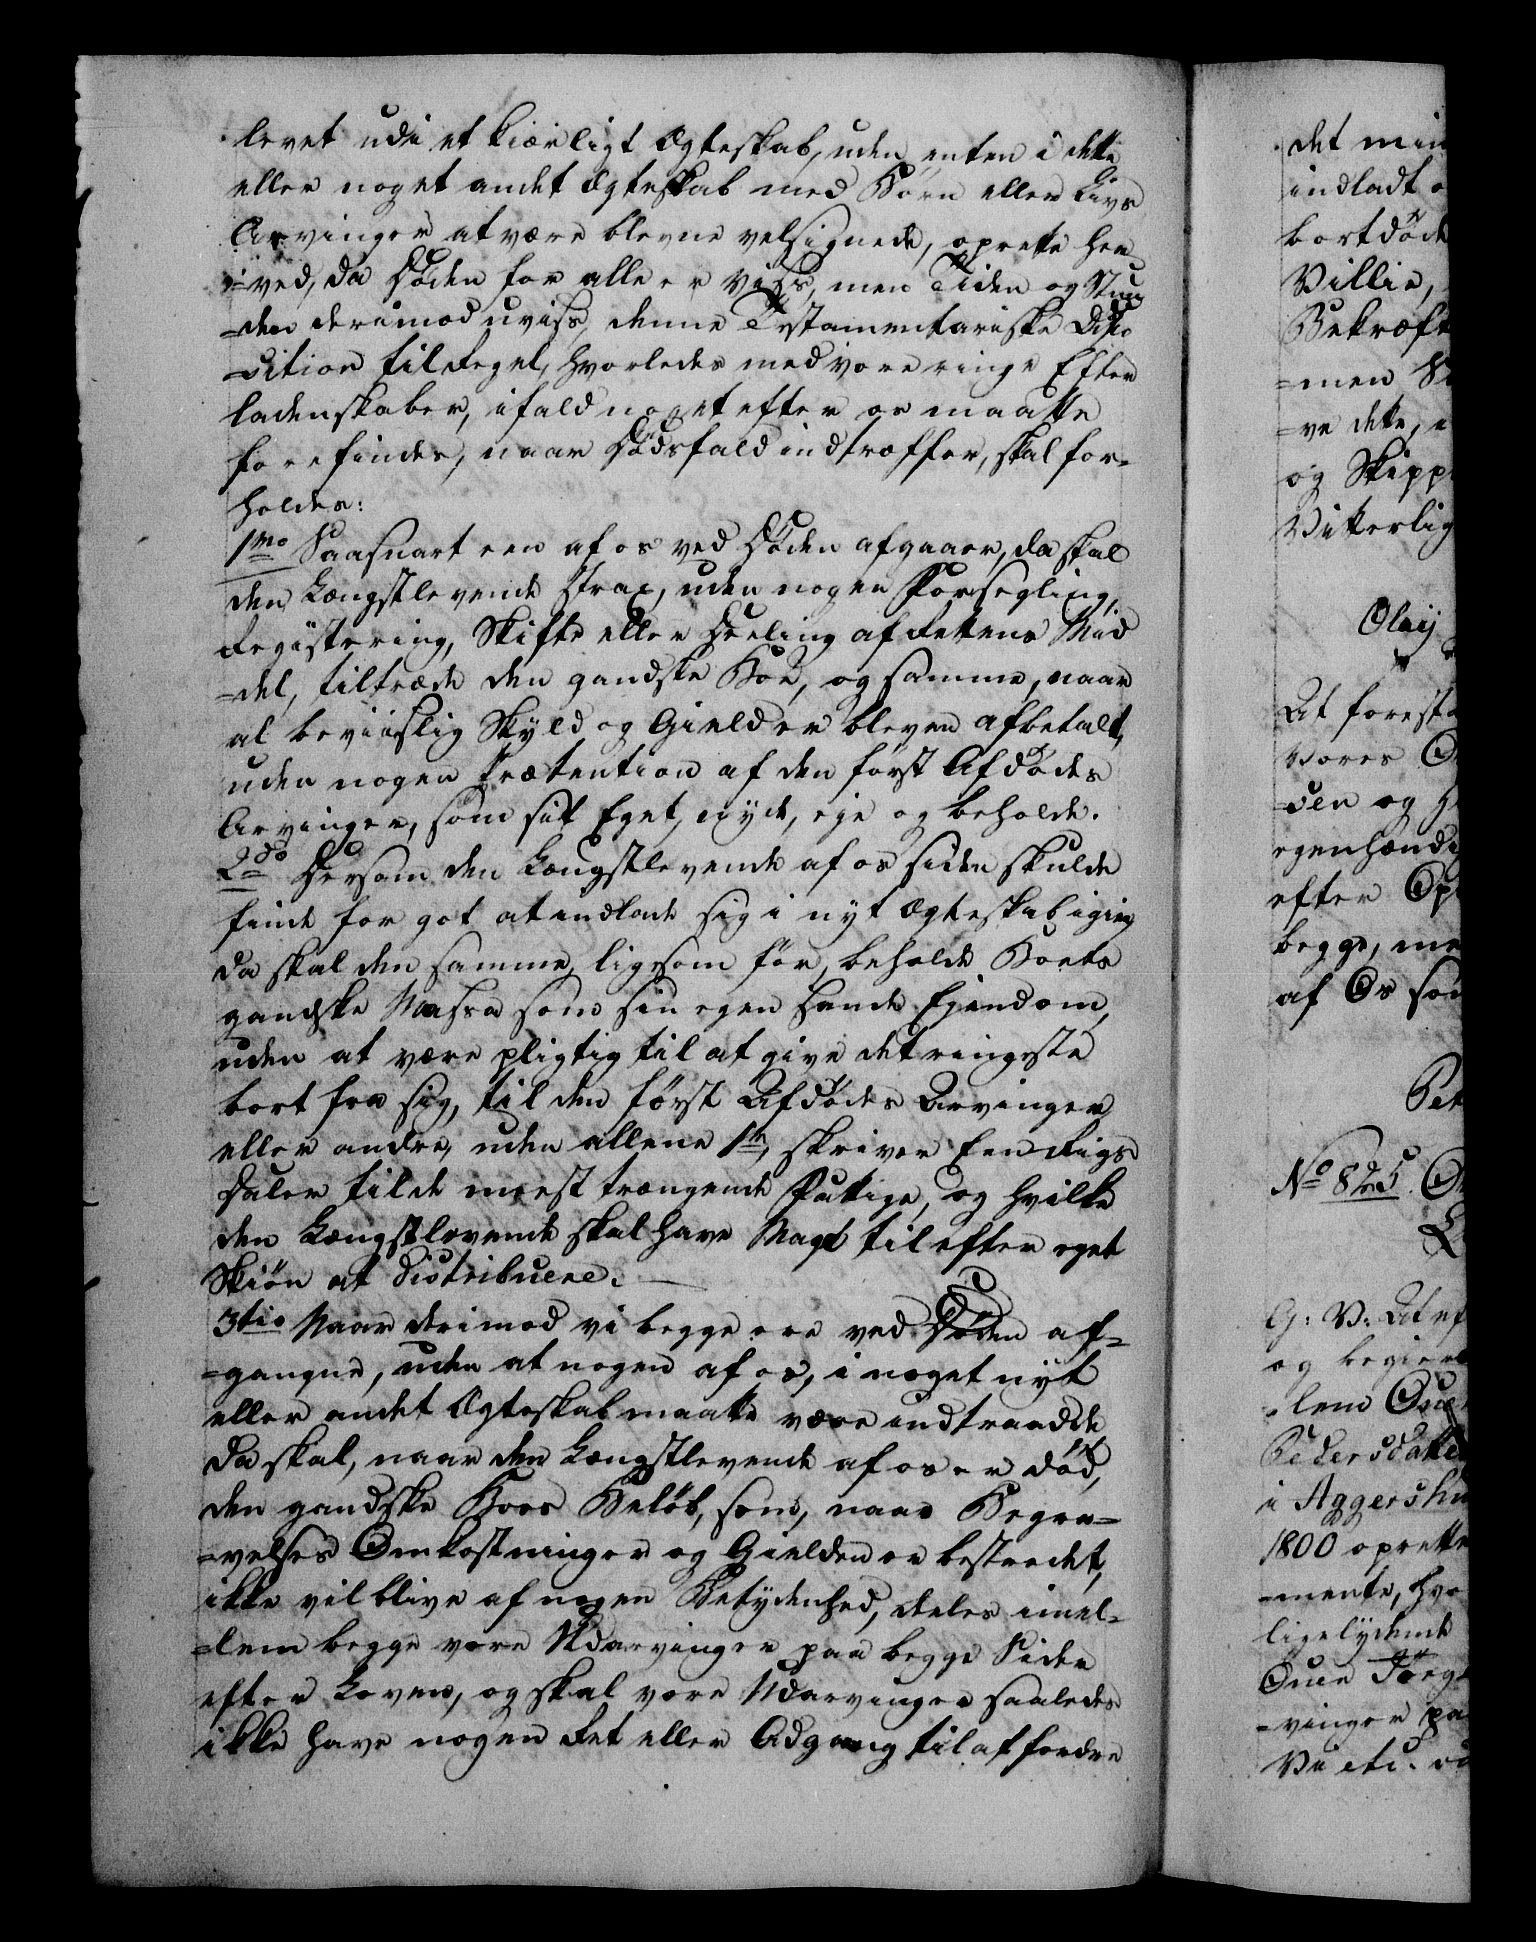 levet udi et kiærligt Ægteskab, uden enten i dette
eller noget andet Ægteskab med Børn eller Livs
Arvinger at være blevne velsignede, oprette her
=ved, da Døden for alle er viss, men Tiden og Stun
=den derimod uviss, denne Testamentariske Dispo
=sition til Regel, hvorledes med vore ringe Efter
ladenskaber, ifald noget efter os maatte
forefindes, naar Dødsfald indtræffer, skal for=
holdes:
1mo Saasnart een af os ved Døden afgaaer, da skal
den Længstlevende strax, uden nogen Forsegling,
Registering, Skifte eller Deeling af Rettens Mid
=del, tiltræde den gandske Boe, og samme, naar
al beviislig Skyld og Gield er bleven afbetalt,
uden nogen Prætention af den først Afdødes
Arvinger, som sit Eget, nyde, eje og beholde.
2do Dersom den Længstlevende af os siden skulde
finde for got at indlade sig i nyt Ægteskab igien
da skal den samme, ligesom før, beholde Boets
gandske Massa som sin egen sande Ejendom,
uden at være pligtig til at give det ringeste
bort fra sig, til den først Afdødes Arvinger
eller andre, uden allene 1 rd, skriver Een Rigs
Daler til de meest trængende Fattige, og hvilke
den Længstlevende skal have Magt til efter eget
Skiøn at distribuere.
3tio Naar derimod vi begge ere ved Døden af=
=gangne, uden at nogen af os, i noget nyt
eller andet Ægteskab maatte være indtraadde,
da skal, naar den Længstlevende af os er død,
den gandske Boes Beløb, som, naar Begra=
=velses Omkostninger og Gielden er bestredet,
ikke vil blive af nogen Betydenhed, deeles imel=
=lem begge vore Udarvinger paa begge Sider
efter Loven, og skal vore Udarvinger saaledes
ikke have nogen Ret eller Adgang til at fordre
det min
indladt
bortdøde
Villie,
Bekræft
=men
=ve dette,
og Skipp
Vitterlig
Oluf
At foresta
Vores
=sen og
egenhændi
efter Op
begge, me
af Os som
Pet
No 825.
G: V: At ef
og begier
=lem Ouer
Pedersdatter
i Aggershu
1800 oprette
=mente, hvo
ligelydende
Ouer Jörg
=vinger paa
Vi etc.